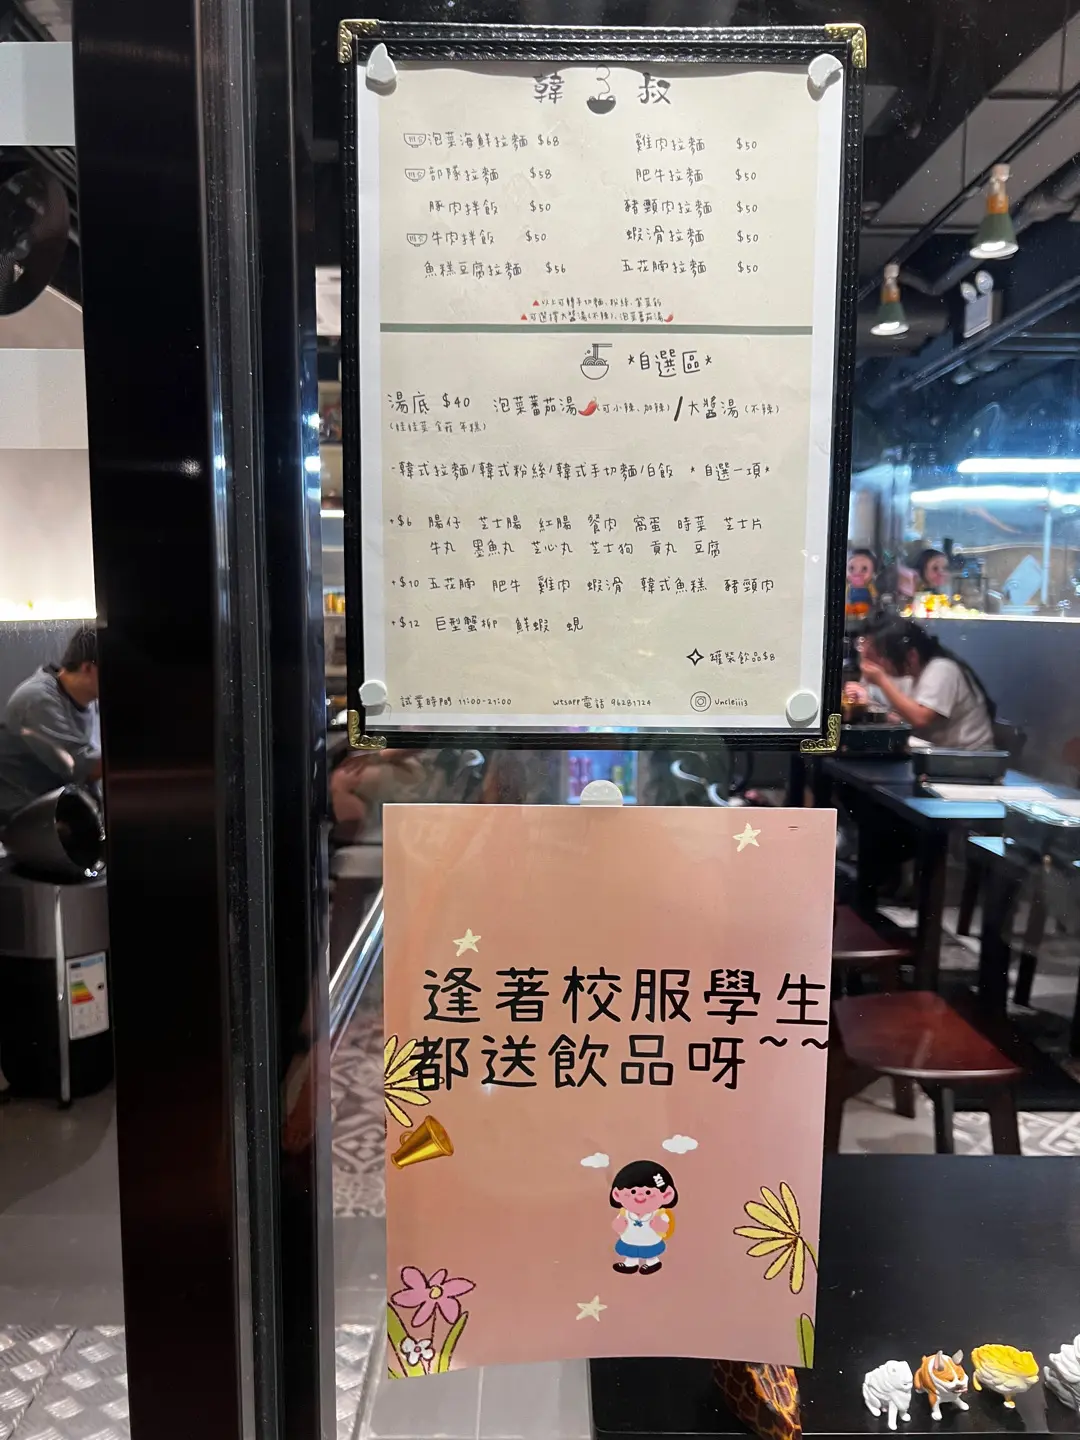 韓 叔
泡菜海鮮拉麵 $68 雞肉拉麵 $50
部隊拉麵 $58 肥牛拉麵 $50
豚肉拌飯 $50 豬頸肉拉麵 $50
牛肉拌飯 $50 蝦滑拉麵 $50
魚糕豆腐拉麵 $56 五花腩拉麵 $50
▲以上可轉手切麵、粉絲、紫菜飯
▲可選擇大醬湯(不辣)、泡菜蕃茄湯🌶
*自選區*
湯底 $40 泡菜蕃茄湯🌶(可小辣、加辣) / 大醬湯(不辣)
(娃娃菜 金菇 年糕)
-韓式拉麵/韓式粉絲/韓式手切麵/白飯 *自選一項*
+$6 腸仔 芝士腸 紅腸 餐肉 窩蛋 時菜 芝士片
牛丸 墨魚丸 芝心丸 芝士狗 貢丸 豆腐
+$10 五花腩 肥牛 雞肉 蝦滑 韓式魚糕 豬頸肉
+$12 巨型蟹柳 鮮蝦 蜆
罐裝飲品$8
試業時間 11:00-21:00 wtsapp電話 96281724 uncleiii3
逢著校服學生
都送飲品呀~~